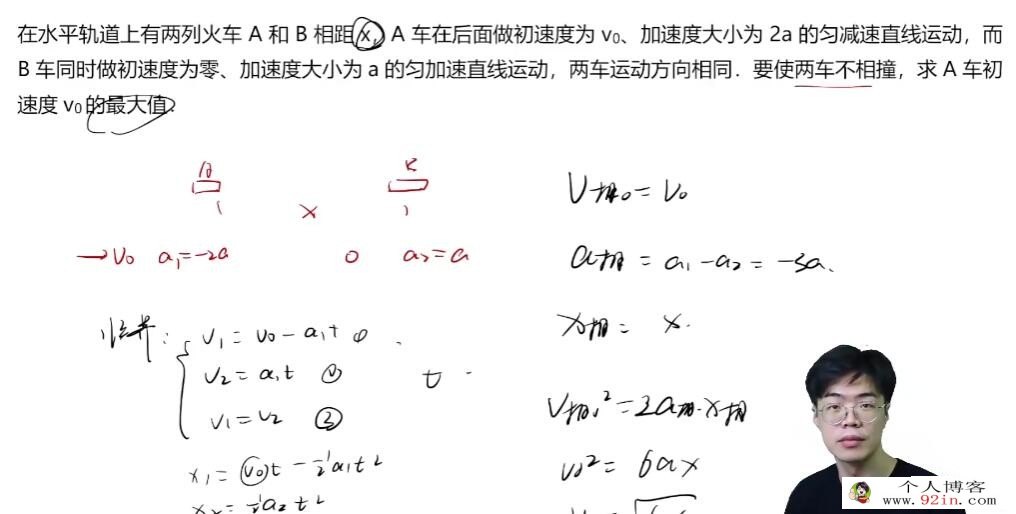 在水平轨道上有两列火车 A 和 B 相距 x，A 车在后面做初速度为 v₀、加速度大小为 2a 的匀减速直线运动，而
B 车同时做初速度为零、加速度大小为 a 的匀加速直线运动，两车运动方向相同．要使两车不相撞，求 A 车初
速度 v₀ 的最大值．
A
x
→ v₀ a₁=-2a 0 a₂=a
临界：
v₁ = v₀ - a₁t ①
v₂ = a₁t ②
t
v₁ = v₂ ③
x₁ = v₀t - ½a₁t²
½a₂t²
v相₀ = v₀
a相 = a₁ - a₂ = -3a.
x相 = x.
v相₁² = 2a相·x相
v₀² = 6ax
个人博客
www.92in.com